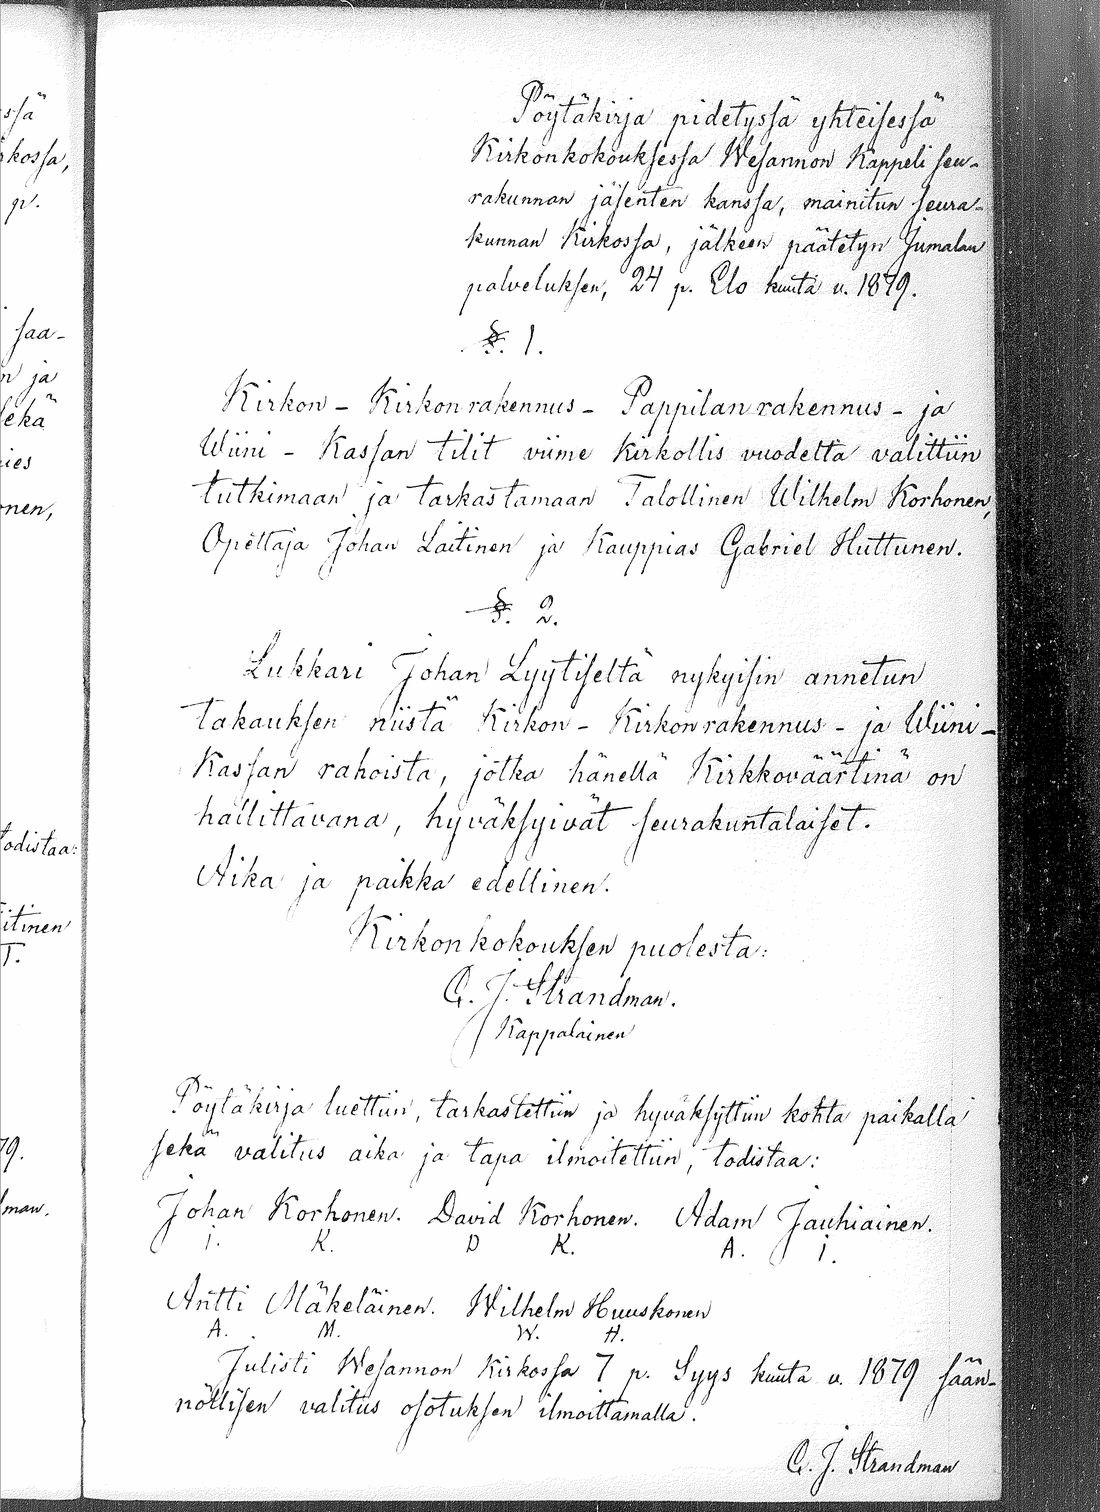 ssä
rkossa,
p.
saa-
n ja
sekä
ies
onen,
todistaa:
itinen
T.
79.
dman.
Pöytäkirja pidetyssä yhteisessä
Kirkonkokouksessa Wesannon Kappeli seu-
rakunnan jäsenten kanssa, mainitun seura-
kunnan Kirkossa, jälkeen päätetyn Jumalan
palveluksen, 24 p. Elo kuuta v. 1879.
§. 1.
Kirkon - Kirkonrakennus - Pappilanrakennus - ja
Wiini - Kassan tilit viime Kirkollis vuodelta valittiin
tutkimaan ja tarkastamaan Talollinen Wilhelm Korhonen,
Opettaja Johan Laitinen ja Kauppias Gabriel Huttunen.
§. 2.
Lukkari Johan Lyytiseltä nykyisin annetun
takauksen niistä Kirkon - Kirkonrakennus - ja Wiini -
Kassan rahoista, jotka hänellä Kirkkoväärtinä on
hallittavana, hyväksyivät seurakuntalaiset.
Aika ja paikka edellinen.
Kirkonkokouksen puolesta:
G. J. Strandman.
Kappalainen
Pöytäkirja luettiin, tarkastettiin ja hyväksyttiin kohta paikalla
sekä valitus aika ja tapa ilmoitettiin, todistaa:
Johan Korhonen. David Korhonen. Adam Jauhiainen.
J. K. D K. A. J.
Antti Mäkeläinen. Wilhelm Huuskonen
A. M. W. H.
Julisti Wesannon Kirkossa 7 p. Syys kuuta v. 1879 sään-
nöllisen valitus osotuksen ilmoittamalla.
G. J. Strandman